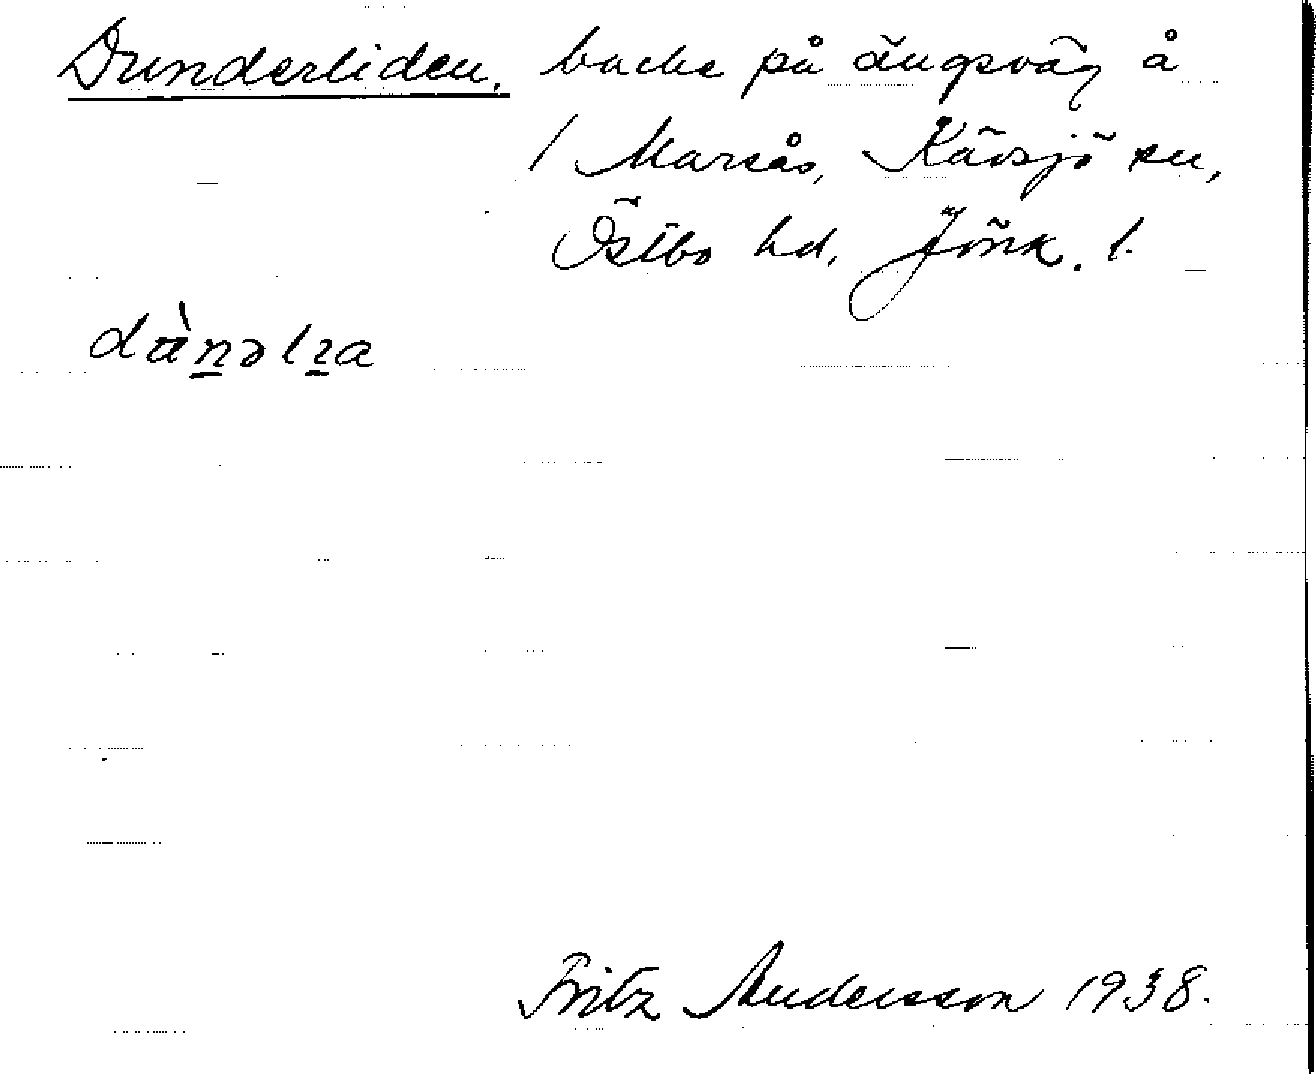 Dunderliden, backe på ängsväg å
/ Marsås, Kävsjö sn,
Östbo hd, Jönk. l.
Fritz Andersson 1938.